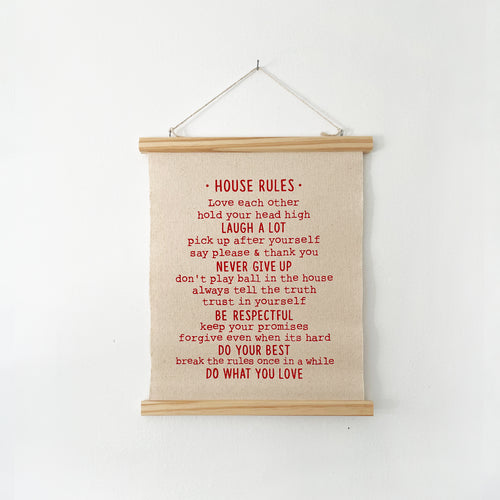 · HOUSE RULES ·
Love each other
hold your head high
LAUGH A LOT
pick up after yourself
say please & thank you
NEVER GIVE UP
don't play ball in the house
always tell the truth
trust in yourself
BE RESPECTFUL
keep your promises
forgive even when its hard
DO YOUR BEST
break the rules once in a while
DO WHAT YOU LOVE